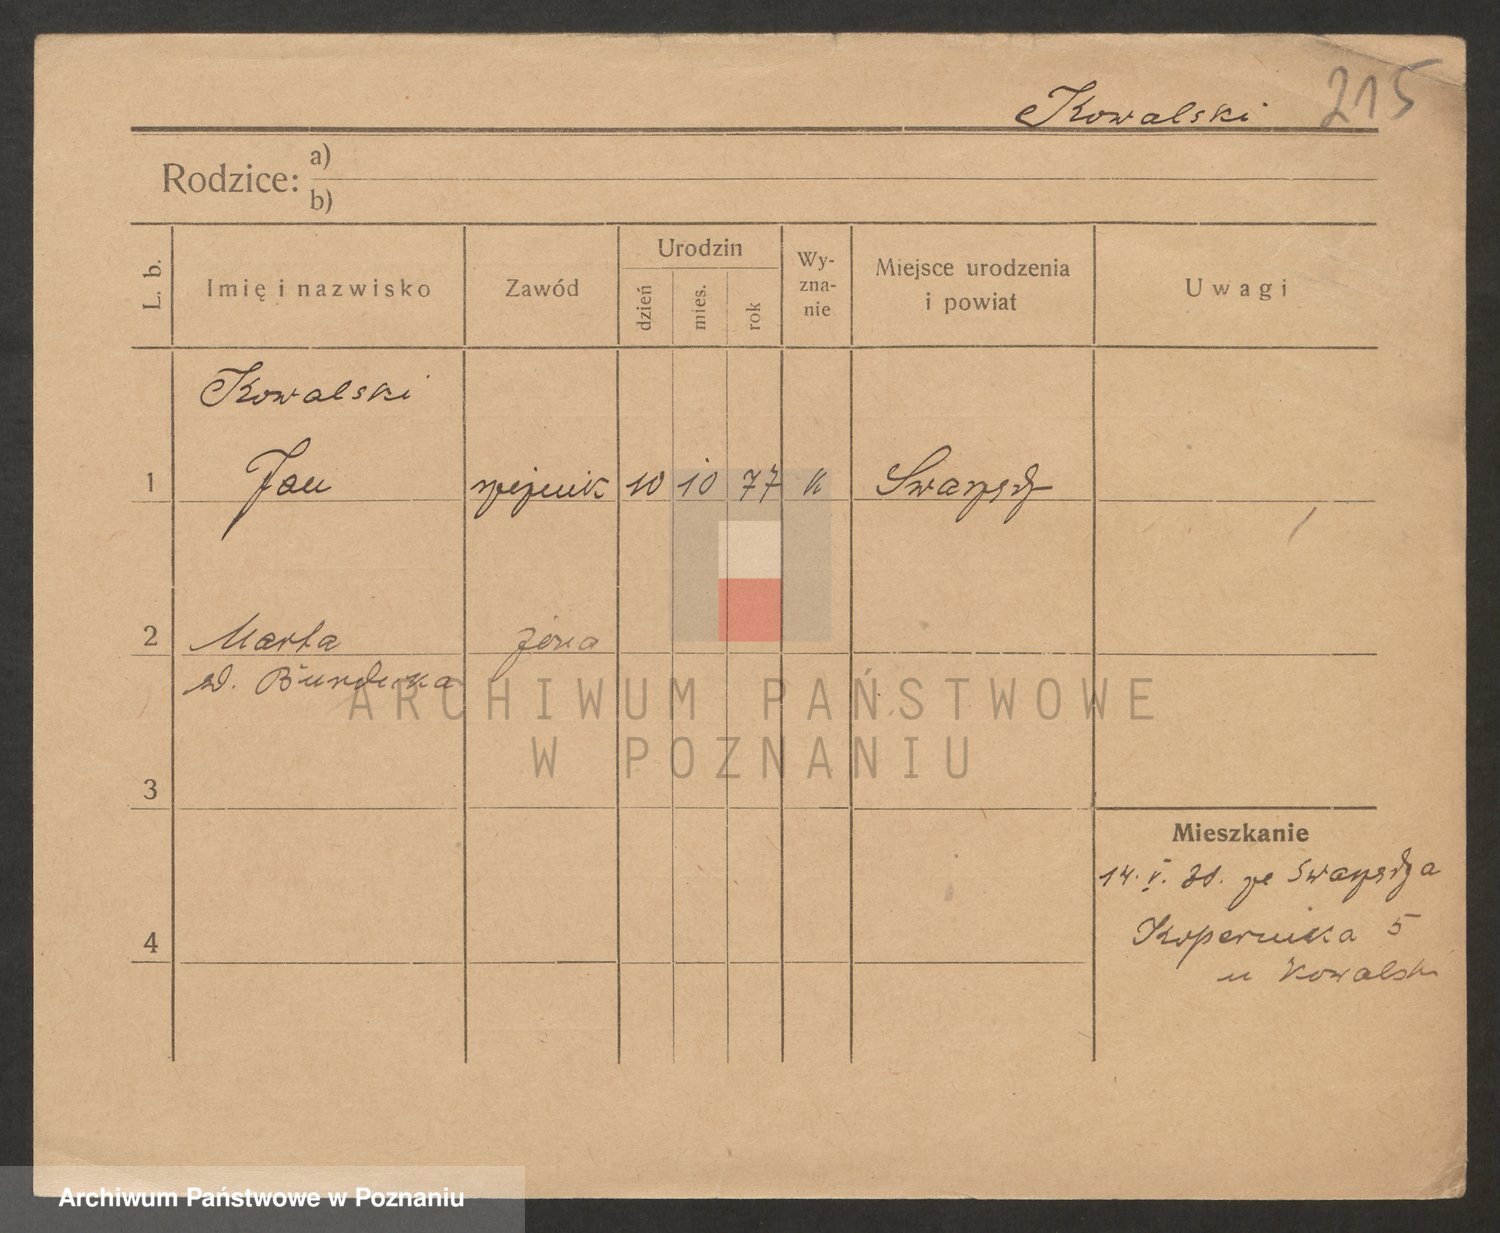 Kowalski 215
Rodzice: a)
b)
L. b.
Imię i nazwisko
Zawód
Urodzin
dzień
mies.
rok
Wy-
zna-
nie
Miejsce urodzenia
i powiat
Uwagi
Kowalski
1 Jan 10 10 77 K Swarzędz
2 Marta żona
3
4
Mieszkanie
14. V. ze Swarzędza
Kopernika 5
u Kowalski
ARCHIWUM PAŃSTWOWE
W POZNANIU
Archiwum Państwowe w Poznaniu